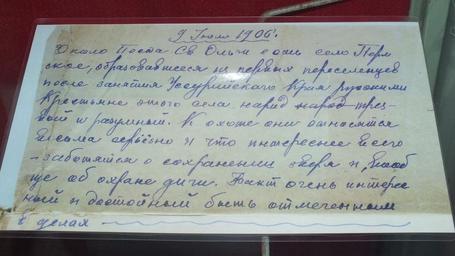 9 Июля 1906 г.
Около Поста Св. Ольги есть село Перм
ское, образовавшееся из первых переселенцев
после занятия Уссурийского Края русскими
Крестьяне этого села народ народ трез-
вый и разумный. К охоте они относятся
весьма серьёзно и что интереснее всего
- заботятся о сохранении зверя и, вооб
ще об охране дичи. Факт очень интерес
ный и достойный быть отмеченным